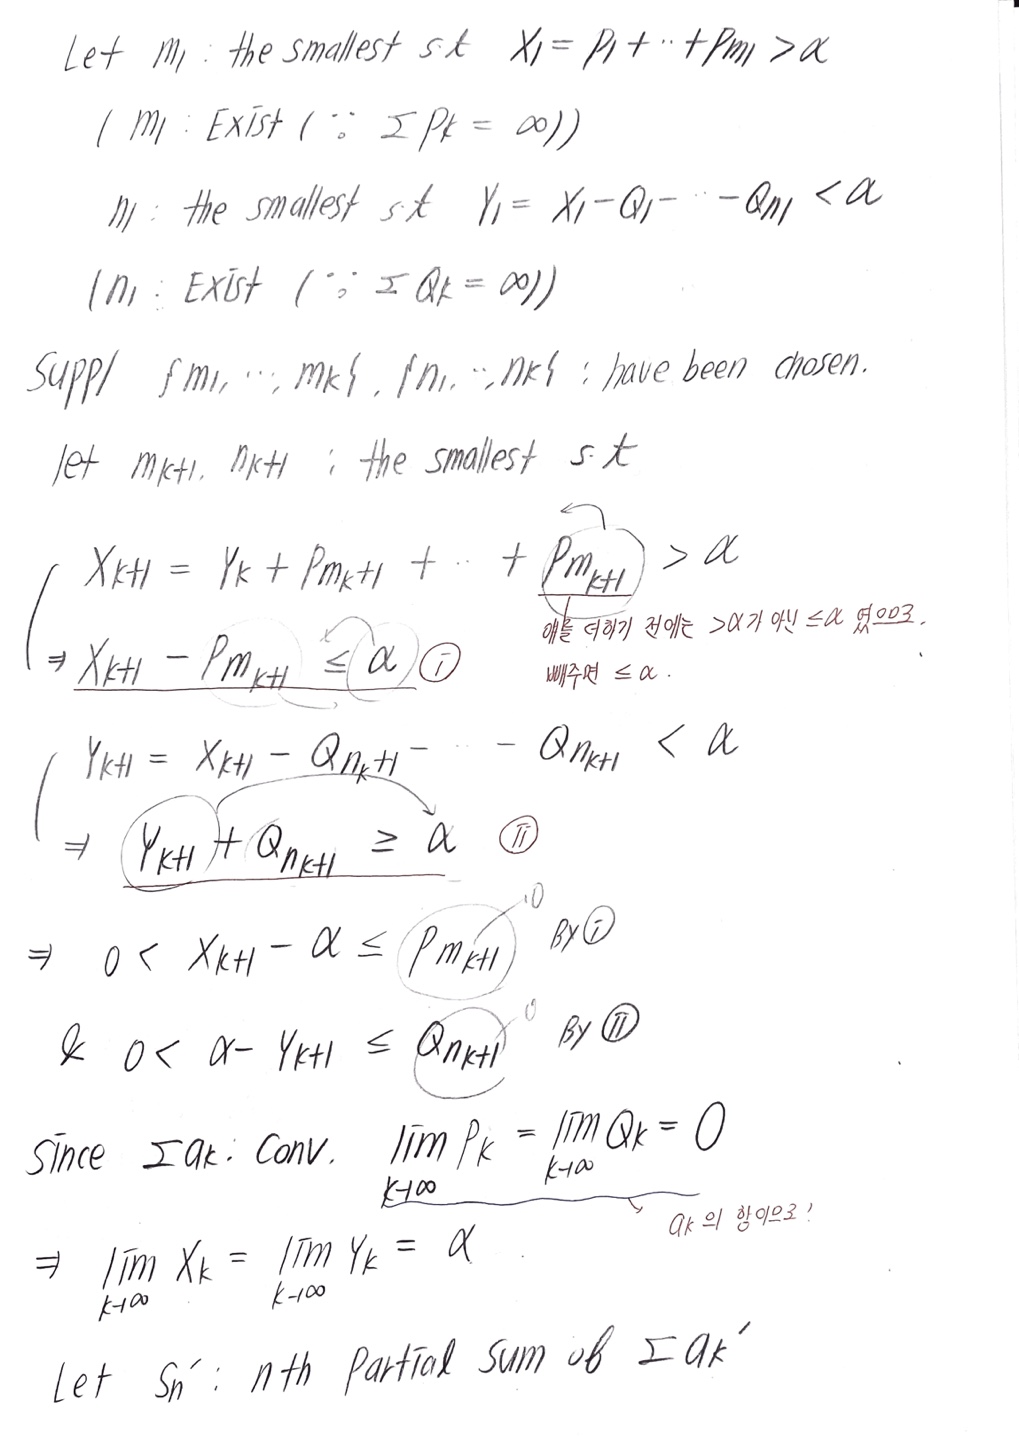 Let m₁ : the smallest s.t X₁ = P₁ + ‥ + Pm₁ > α
( m₁ : Exist ( ∵ Σ Pk = ∞))
n₁ : the smallest s.t Y₁ = X₁ - Q₁ - ‥ - Qn₁ < α
( n₁ : Exist ( ∵ Σ Qk = ∞))
Supp/ {m₁, ‥, mk}, {n₁, ‥, nk} : have been chosen.
let mk+1, nk+1 : the smallest s.t
Xk+1 = Yk + Pmk+1 + ‥ + Pmk+1 > α
얘를 더하기 전에는 >α가 아닌 ≤α 였으므로,
빼주면 ≤ α.
⇒ Xk+1 - Pmk+1 ≤ α ⓘ
Yk+1 = Xk+1 - Qnk+1 - ‥ - Qnk+1 < α
⇒ Yk+1 + Qnk+1 ≥ α ⓘⓘ
⇒ 0 < Xk+1 - α ≤ Pmk+1 → 0 By ⓘ
& 0 < α - Yk+1 ≤ Qnk+1 → 0 By ⓘⓘ
Since Σak : Conv. lim k→∞ Pk = lim k→∞ Qk = 0
ak의 항이므로!
⇒ lim k→∞ Xk = lim k→∞ Yk = α
Let Sn′ : nth Partial sum of Σ ak′